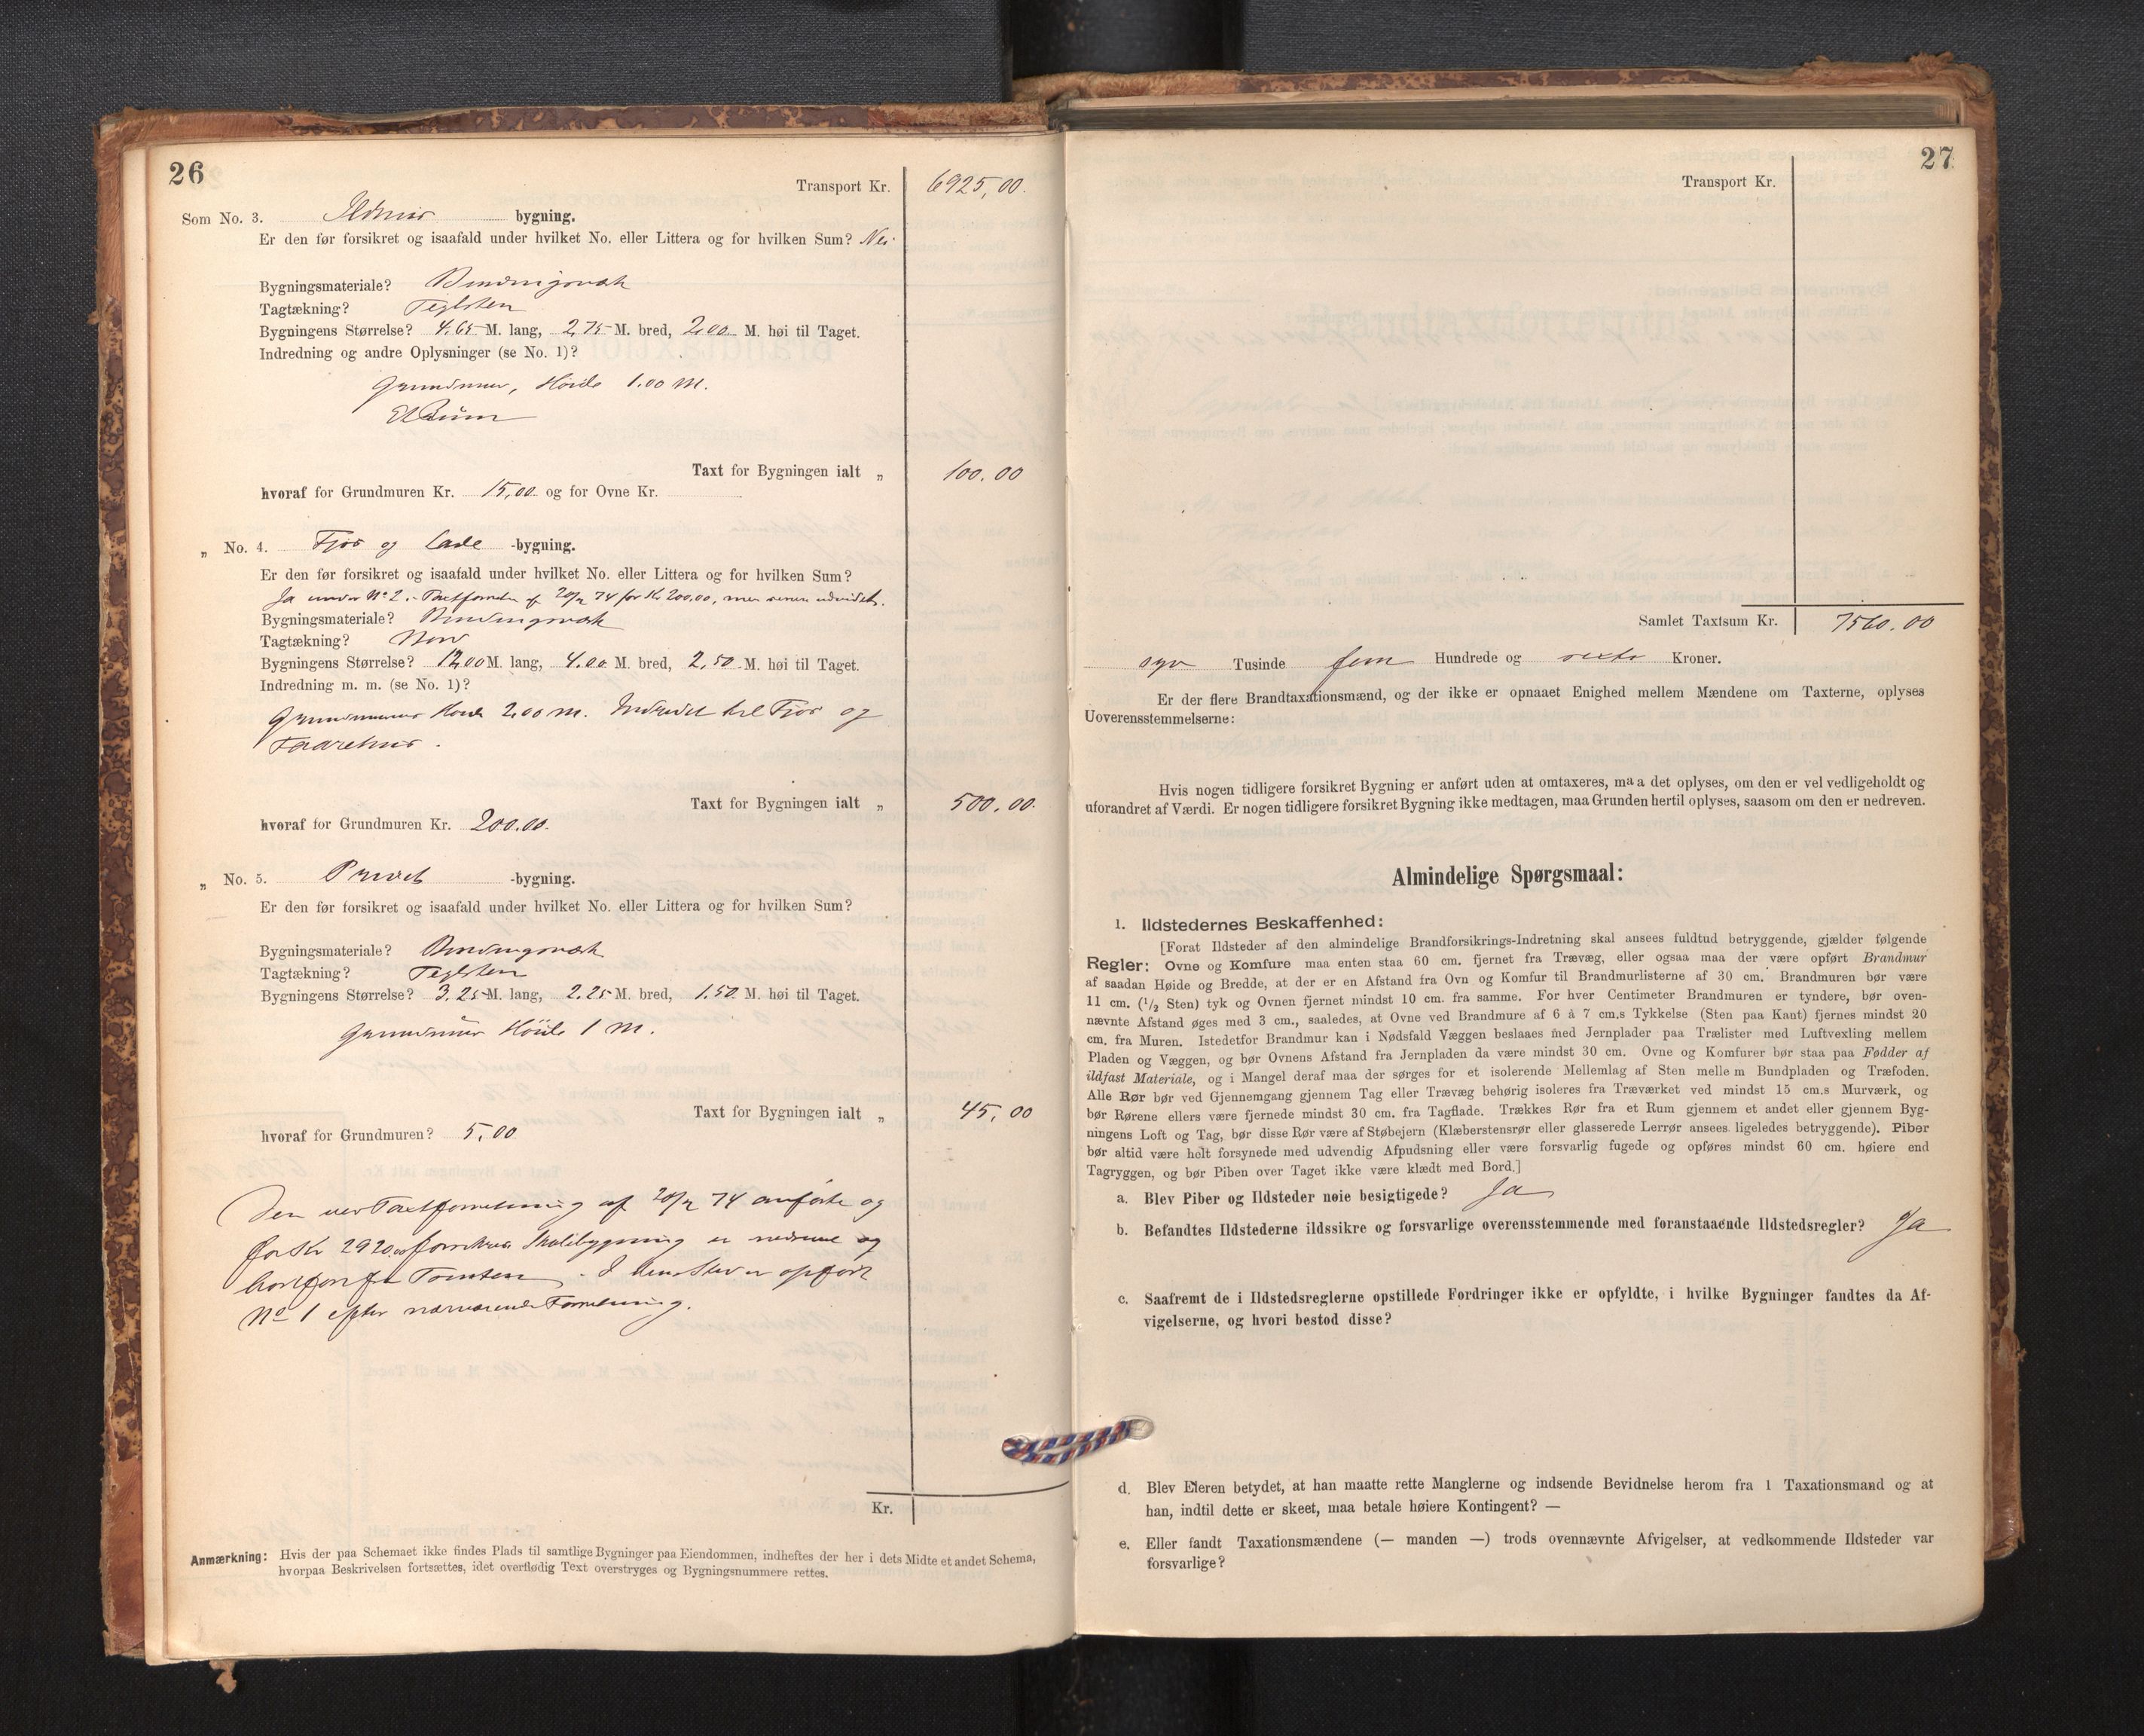 26
Transport Kr. 6925,00.
Som No. 3. Ildhus bygning.
Er den før forsikret og isaafald under hvilket No. eller Littera og for hvilken Sum? Nei
Bygningsmateriale? Bindingsværk
Tagtækning? Teglsten
Bygningens Størrelse? 4.65 M. lang, 2,75 M. bred, 2,00 M. høi til Taget.
Indredning og andre Oplysninger (se No. 1)?
Grundmur, Høide 1.00 M.
Et Rum
Taxt for Bygningen ialt „ 100.00
hvoraf for Grundmuren Kr. 15,00 og for Ovne Kr.
„ No. 4. Fjøs og Lade -bygning.
Er den før forsikret og isaafald under hvilket No. eller Littera og for hvilken Sum?
Ja under No 2. Taxtforretn. af 74 for Kr 200.00, men senere udvidet.
Bygningsmateriale? Bindingsværk
Tagtækning?
Bygningens Størrelse? 12,00 M. lang, 4.00 M. bred, 2,50 M. høi til Taget.
Indredning m. m. (se No. 1)?
Grundmurens Høide 2,00 M. Indredet til Fjøs og
Faarehus.
Taxt for Bygningen ialt „ 500,00.
hvoraf for Grundmuren Kr. 200.00.
„ No. 5. Privet -bygning.
Er den før forsikret og isaafald under hvilket No. eller Littera og for hvilken Sum?
Bygningsmateriale? Bindingsværk
Tagtækning? Teglsten
Bygningens Størrelse? 3.25 M. lang, 2.25 M. bred, 1.50 M. høi til Taget.
Grundmur Høide 1 M.
Taxt for Bygningen ialt „ 45,00
hvoraf for Grundmuren? 5,00
Den ved Taxtforretning af 74 anførte og
for Kr 2920.00 forsikrede bygning er nedrevet og
fra Tomten. I dens Sted er opført
No 1 efter nærværende Forretning.
Kr.
Anmærkning: Hvis der paa Schemaet ikke findes Plads til samtlige Bygninger paa Eiendommen, indheftes der her i dets Midte et andet Schema,
hvorpaa Beskrivelsen fortsættes, idet overflødig Text overstryges og Bygningsnummere rettes.
27
Transport Kr.
Samlet Taxtsum Kr. 7560.00
syv Tusinde fem Hundrede og sexti Kroner.
Er der flere Brandtaxationsmænd, og der ikke er opnaaet Enighed mellem Mændene om Taxterne, oplyses
Uoverensstemmelserne:
Hvis nogen tidligere forsikret Bygning er anført uden at omtaxeres, maa det oplyses, om den er vel vedligeholdt og
uforandret af Værdi. Er nogen tidligere forsikret Bygning ikke medtagen, maa Grunden hertil oplyses, saasom om den er nedreven.
Almindelige Spørgsmaal:
1. Ildstedernes Beskaffenhed:
[Forat Ildsteder af den almindelige Brandforsikrings-Indretning skal ansees fuldtud betryggende, gjælder følgende
Regler: Ovne og Komfure maa enten staa 60 cm. fjernet fra Trævæg, eller ogsaa maa der være opført Brandmur
af saadan Høide og Bredde, at der er en Afstand fra Ovn og Komfur til Brandmurlisterne af 30 cm. Brandmuren bør være
11 cm. (1/2 Sten) tyk og Ovnen fjernet mindst 10 cm. fra samme. For hver Centimeter Brandmuren er tyndere, bør oven-
nævnte Afstand øges med 3 cm., saaledes, at Ovne ved Brandmure af 6 à 7 cm.s Tykkelse (Sten paa Kant) fjernes mindst 20
cm. fra Muren. Istedetfor Brandmur kan i Nødsfald Væggen beslaaes med Jernplader paa Trælister med Luftvexling mellem
Pladen og Væggen, og bør Ovnens Afstand fra Jernpladen da være mindst 30 cm. Ovne og Komfurer bør staa paa Fødder af
ildfast Materiale, og i Mangel deraf maa der sørges for et isolerende Mellemlag af Sten mellem Bundpladen og Træfoden.
Alle Rør bør ved Gjennemgang gjennem Tag eller Trævæg behørig isoleres fra Træværket ved mindst 15 cm.s Murværk, og
bør Rørene ellers være fjernede mindst 30 cm. fra Tagflade. Trækkes Rør fra et Rum gjennem et andet eller gjennem Byg-
ningens Loft og Tag, bør disse Rør være af Støbejern (Klæberstensrør eller glasserede Lerrør ansees ligeledes betryggende). Piber
bør altid være helt forsynede med udvendig Afpudsning eller være forsvarlig fugede og opføres mindst 60 cm. høiere end
Tagryggen, og bør Piben over Taget ikke være klædt med Bord.]
a. Blev Piber og Ildsteder nøie besigtigede? Ja
b. Befandtes Ildstederne ildssikre og forsvarlige overensstemmende med foranstaaende Ildstedsregler? Ja
c. Saafremt de i Ildstedsreglerne opstillede Fordringer ikke er opfyldte, i hvilke Bygninger fandtes da Af-
vigelserne, og hvori bestod disse?
d. Blev Eieren betydet, at han maatte rette Manglerne og indsende Bevidnelse herom fra 1 Taxationsmand og at
han, indtil dette er skeet, maa betale høiere Kontingent? —
e. Eller fandt Taxationsmændene (— manden —) trods ovennævnte Afvigelser, at vedkommende Ildsteder var
forsvarlige?